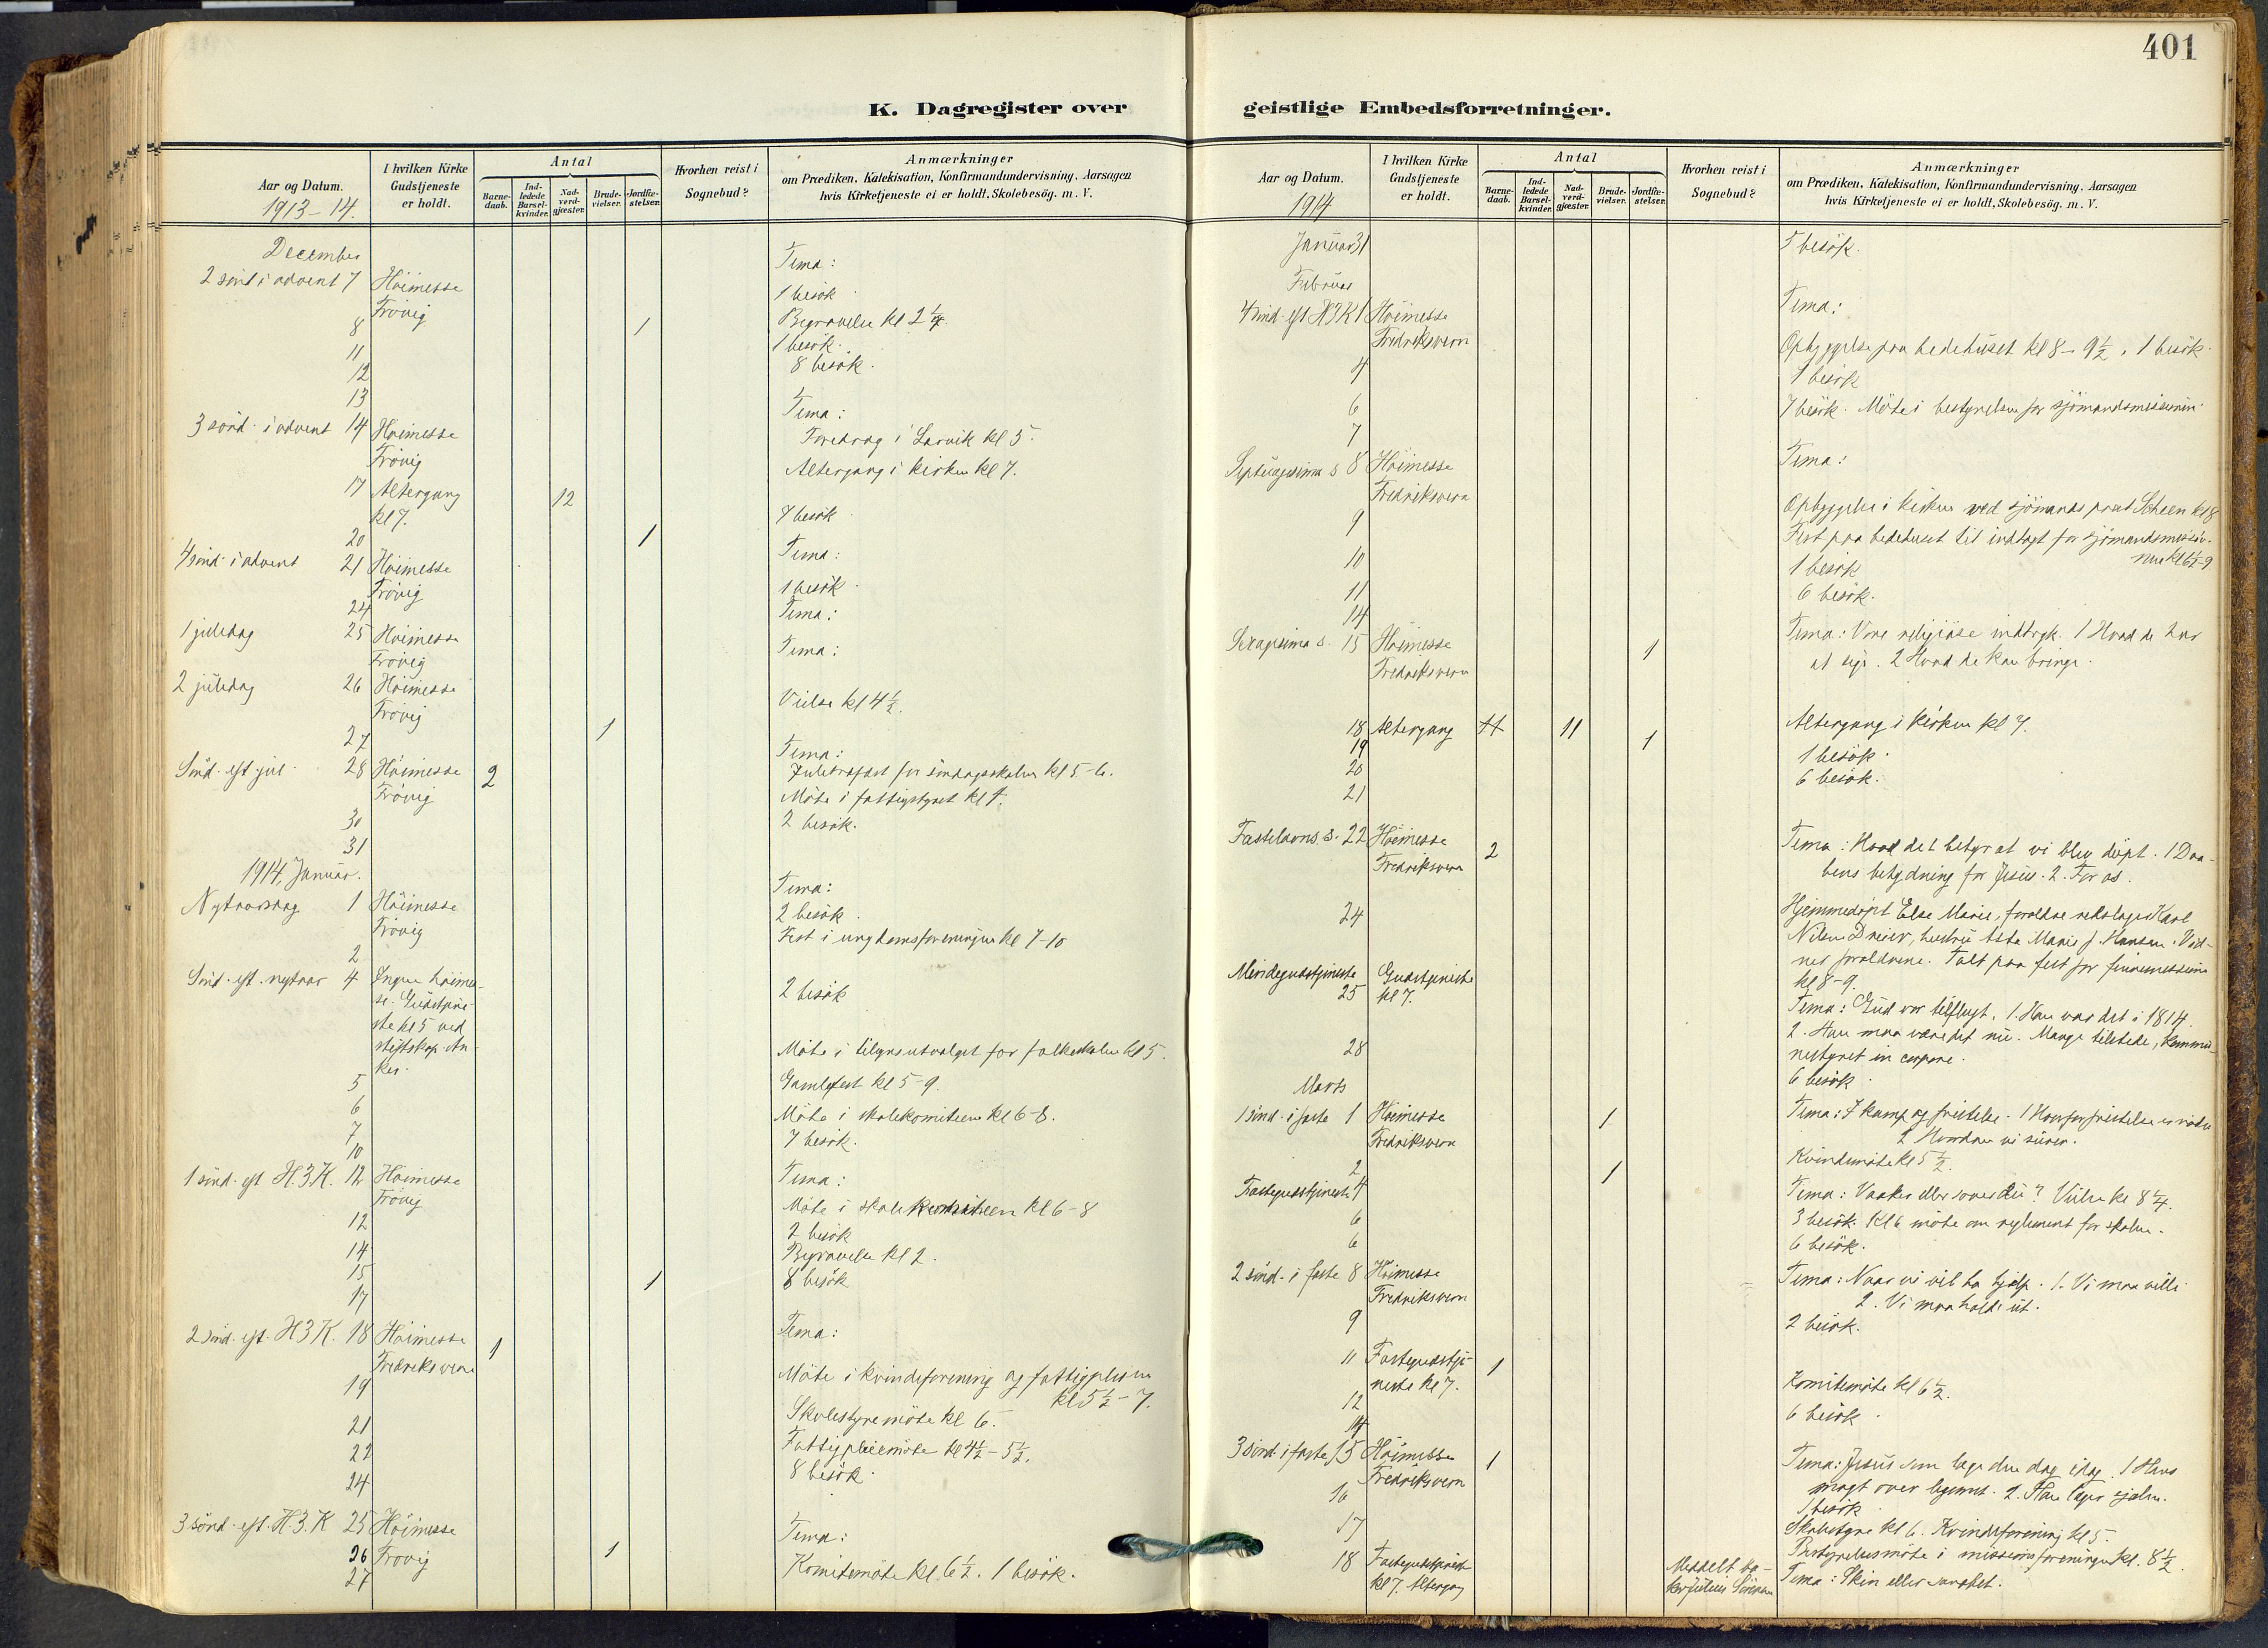 401
K. Dagregister over
geistlige Embedsforretninger.
Aar og Datum.
1913-14.
I hvilken Kirke
Gudstjeneste
er holdt.
Antal
Barne-
daab.
Ind-
ledede
Barsel-
kvinder.
Nad-
verd-
gjæster.
Brude-
vielser.
Jordfæ-
stelser.
Hvorhen reist i
Sognebud?
Anmærkninger
om Prædiken, Katekisation, Konfirmandundervisning, Aarsagen
hvis Kirketjeneste ei er holdt, Skolebesög. m. V.
December
Tema:
2 sönd i advent 7 Höimesse
Frövig
1 besök
8 1 Begravelse kl 2 1/4.
11 1 besök.
12 8 besök.
13
3 sönd. i advent 14 Höimesse Tema:
Frövig Foredrag i Larvik kl 5.
17 Altergang 12 Altergang i kirken kl 7.
kl 7.
20 1 7 besök
4 sönd. i advent 21 Höimesse Tema:
Frövig
24 1 besök.
1 juledag 25 Höimesse Tema:
Frövig
2 juledag 26 Höimesse Tema:
Frövig
27 1 Vielse kl 4 1/2.
Sönd. eft jul. 28 Höimesse 2 Tema:
Frövig Juletræfest for söndagsskolen kl 5-6.
30 Möte i fattigstyret kl 4.
31 2 besök.
1914, Januar.
Nytaarsdag 1 Höimesse Tema:
Frövig 2 besök.
2 Fest i ungdomsforeningen kl 7-10
Sönd. eft. nytaar 4 Ingen höimes-
se. Gudstjene-
ste kl 5 ved
stiftskap. An-
ker.
2 besök
5 Möte i tilsynsutvalget for folkeskolen kl 5.
6 Gamlefest kl 5-9.
7 Möte i skolekomiteen kl 6-8.
10 7 besök.
1 sönd. eft H.3.K. 12 Höimesse Tema:
Frövig
12 Möte i skolekomiteen kl 6-8
14 2 besök
15 1 Begravelse kl 2.
17 8 besök
2 sönd. eft. H3K. 18 Höimesse 1 Tema:
Fredriksvern
19 Möte i kvindeforening og fattigpleien
kl 5 1/2-7.
21 Skolestyremöte kl 6.
22 Fattigpleiemöte kl 4 1/2-5 1/2.
24 8 besök.
3 sönd. eft. H.3.K 25 Höimesse Tema:
26 Frövig 1
27 Komitemöte kl 6 1/2. 1 besök.
Aar og Datum.
1914
I hvilken Kirke
Gudstjeneste
er holdt.
Antal
Barne-
daab.
Ind-
ledede
Barsel-
kvinder.
Nad-
verd-
gjæster.
Brude-
vielser.
Jordfæ-
stelser.
Hvorhen reist i
Sognebud?
Anmærkninger
om Prædiken, Katekisation, Konfirmandundervisning, Aarsagen
hvis Kirketjeneste ei er holdt, Skolebesög. m. V.
Januar 31 7 besök.
Februar
4 sönd. eft H3K 1 Höimesse Tema:
Fredriksvern
4 Opbyggelse paa bedehuset kl 8-9 1/2. 1 besök.
6 1 besök
7 7 besök. Möte i bestyrelsen for sjömandsmissionen.
Septuagesima s 8 Höimesse Tema:
Fredriksvern
9 Opbyggelse i kirken ved sjömandsprest Scheen kl 8
10 Fest paa bedehuset til indtægt for sjömandsmissio-
nen kl 6 1/2-9
11 1 besök
14 6 besök.
Sexagesima s. 15 Höimesse 1 Tema: Vore religiöse indtryk. 1 Hvad de har
Fredriksvern at sige. 2 Hvad de kan bringe.
18 Altergang 11 Altergang i kirken kl 7.
19 1
20 1 besök.
21 6 besök.
Fastelavns s. 22 Höimesse 2 Tema: Hvad det betyr at vi blev döpt. 1 Daa-
Fredriksvern bens betydning for Jesus. 2. For os.
24 Hjemmedöpt Else Marie, forældre Karl
Nilsen Dreier, hustru Marie f. Hansen. Vid-
ner forældrene. Talt paa fest for finnemissionen
kl 8-9.
Mindegudstjeneste Gudstjeneste Tema: Gud vor tilflugt. 1. Han var det i 1814
25 kl 7. 2. Han maa være det nu. Mange tilstede, kommu-
nestyret in corpore.
28 6 besök.
Marts
1 sönd. i faste 1 Höimesse 1 Tema: I kamp og fristelse. 1 Hvorfor fristelse er
Fredriksvern 2 Hvordan vi seirer.
2 1 Kvindemöte kl 5 1/2.
Fastegudstjeneste 4 Tema: Vaaker eller sover du? Vielse kl 8 1/4.
6 3 besök. Kl 6 möte om reglement for skolen.
6 6 besök.
2 sönd. i faste 8 Höimesse Tema: Naar vi vil ha hjelp. 1. Vi maa ville
Fredriksvern 2. Vi maa holde ut.
9 2 besök.
11 Fastegudstje- 1
neste kl 7.
12 Komitemöte kl 6 1/2.
14 6 besök.
3 sönd. i faste 15 Höimesse 1 Tema: Jesus som læge den dag idag. 1 Hans
Fredriksvern magt over legemet. 2. Han læger sjælen.
16 1 besök
17 Skolestyre kl 6. Kvindeforening kl 5.
Bestyrelsesmöte i missionsforeningen kl. 8 1/2
18 Fastegudstjeneste Meddelt ba- Tema: Skin eller sandhet.
kl 7. Altergang ker Julius